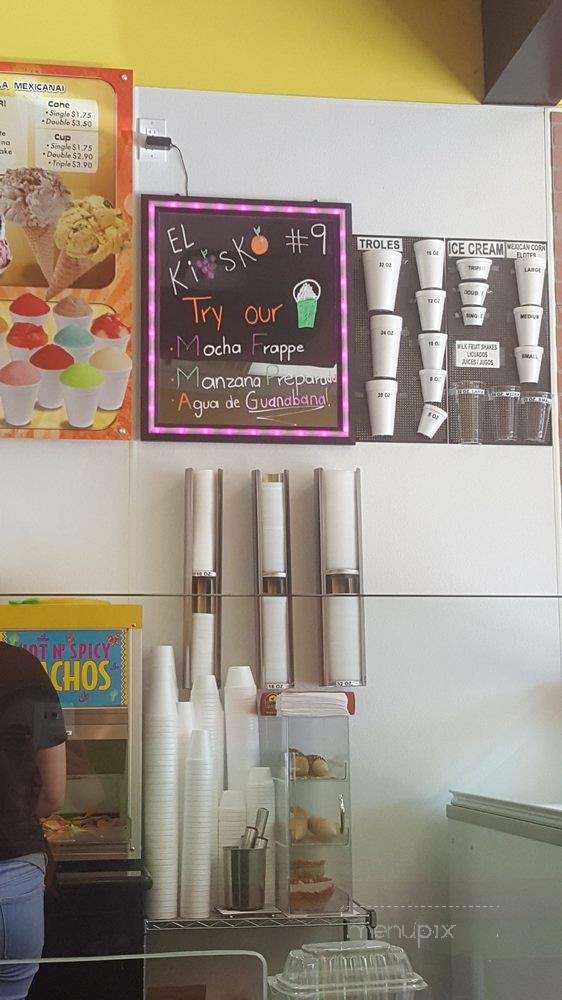 LA MEXICANA)
Cone
• Single $1.75
• Double $3.50
Cup
• Single $1.75
• Double $2.90
• Triple $3.90
EL
Kiosko #9
Try our
• Mocha Frappe
• Manzana Preparada
• Agua de Guanabana!
TROLES
32 OZ
24 OZ
20 OZ
16 OZ
12 OZ
10 OZ
8 OZ
ICE CREAM
TRIPLE
DOUBLE
SINGLE
MILK FRUIT SHAKES
LICUADOS
JUICES / JUGOS
MEXICAN CORN
ELOTES
LARGE
MEDIUM
SMALL
16 OZ.
32 OZ.
HOT N' SPICY
NACHOS
menupix